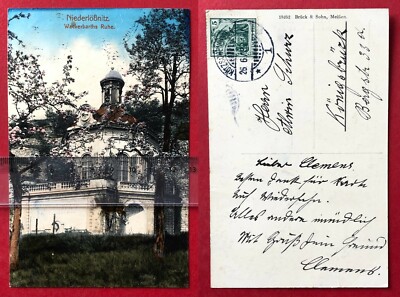 Niederlößnitz.
Wackerbarths Ruhe.
18482 Brück & Sohn, Meißen.
5
26 6
1
Herrn
Königsbrück
Lieber Clemens
Besten Dank für Karte
Auf Wiedersehn.
Alles andere mündlich
Mit Gruß Dein Freund
Clemens.